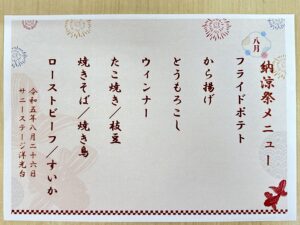 八月
納涼祭メニュー
フライドポテト
から揚げ
とうもろこし
ウィンナー
たこ焼き/枝豆
焼きそば/焼き鳥
ローストビーフ/すいか
令和五年八月二十六日
サニーステージ洋光台